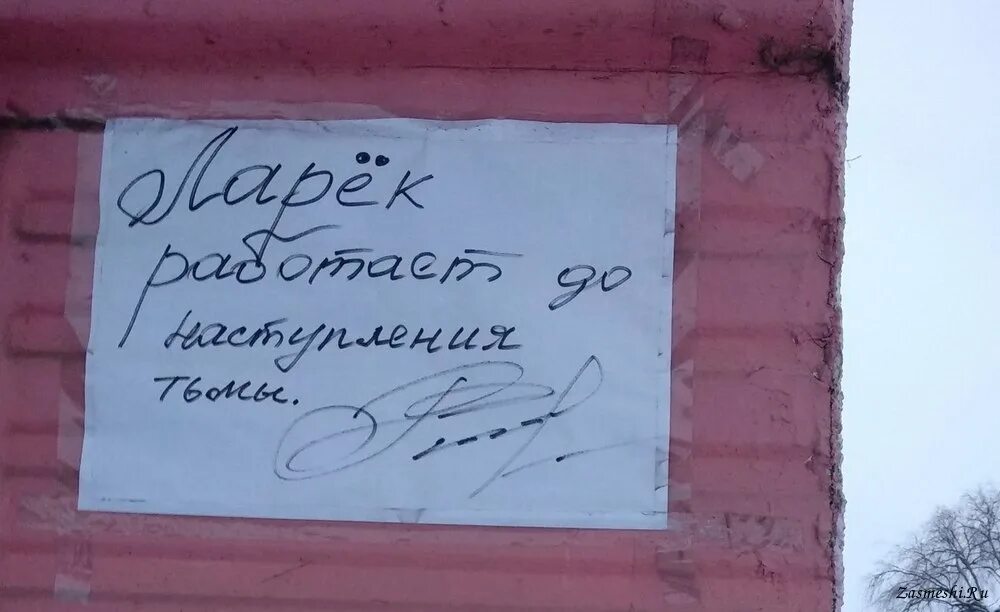 Ларёк
работает до
наступления
тьмы.
Zasmeshi.Ru